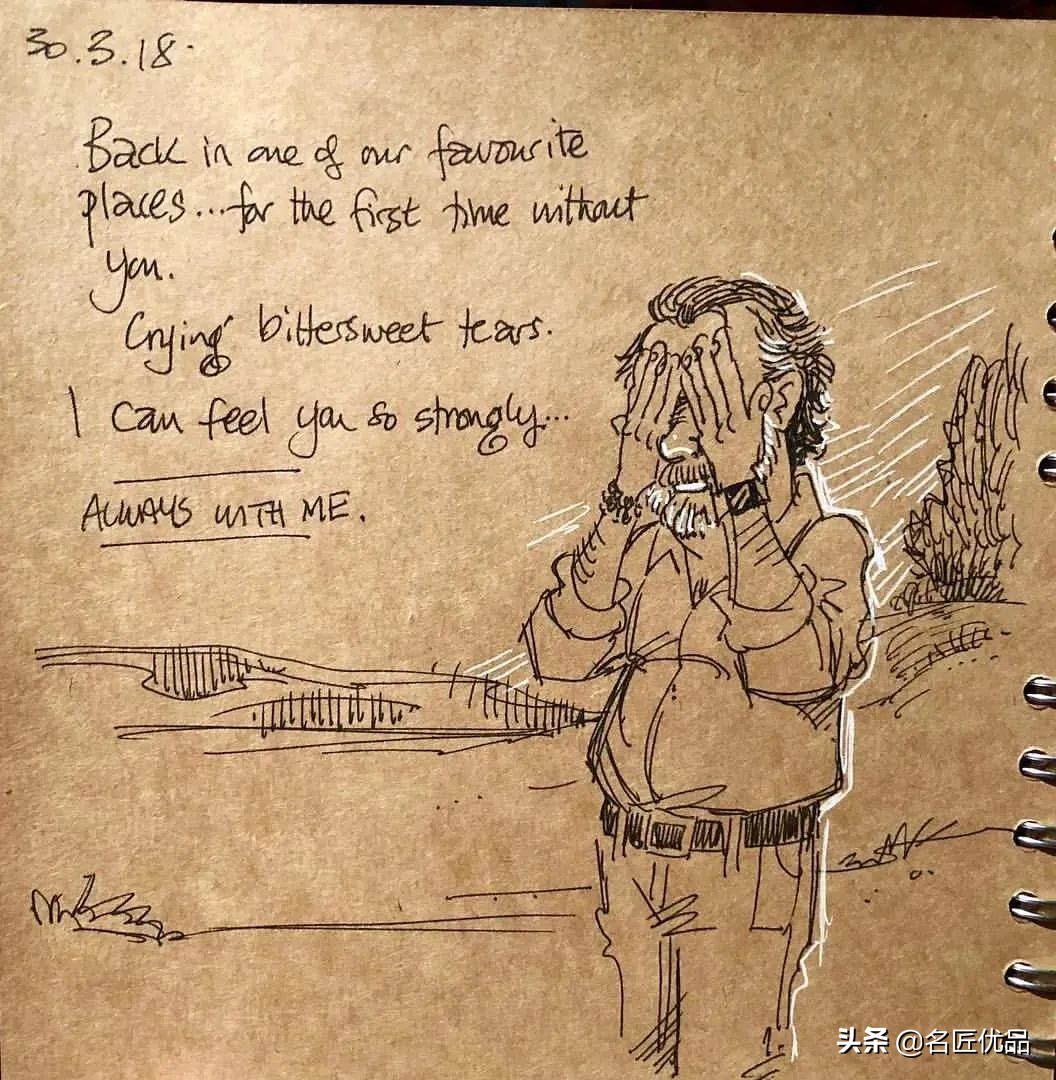 30.3.18.
Back in one of our favourite
places...for the first time without
you.
Crying bittersweet tears.
I can feel you so strongly...
ALWAYS WITH ME.
头条 @名匠优品